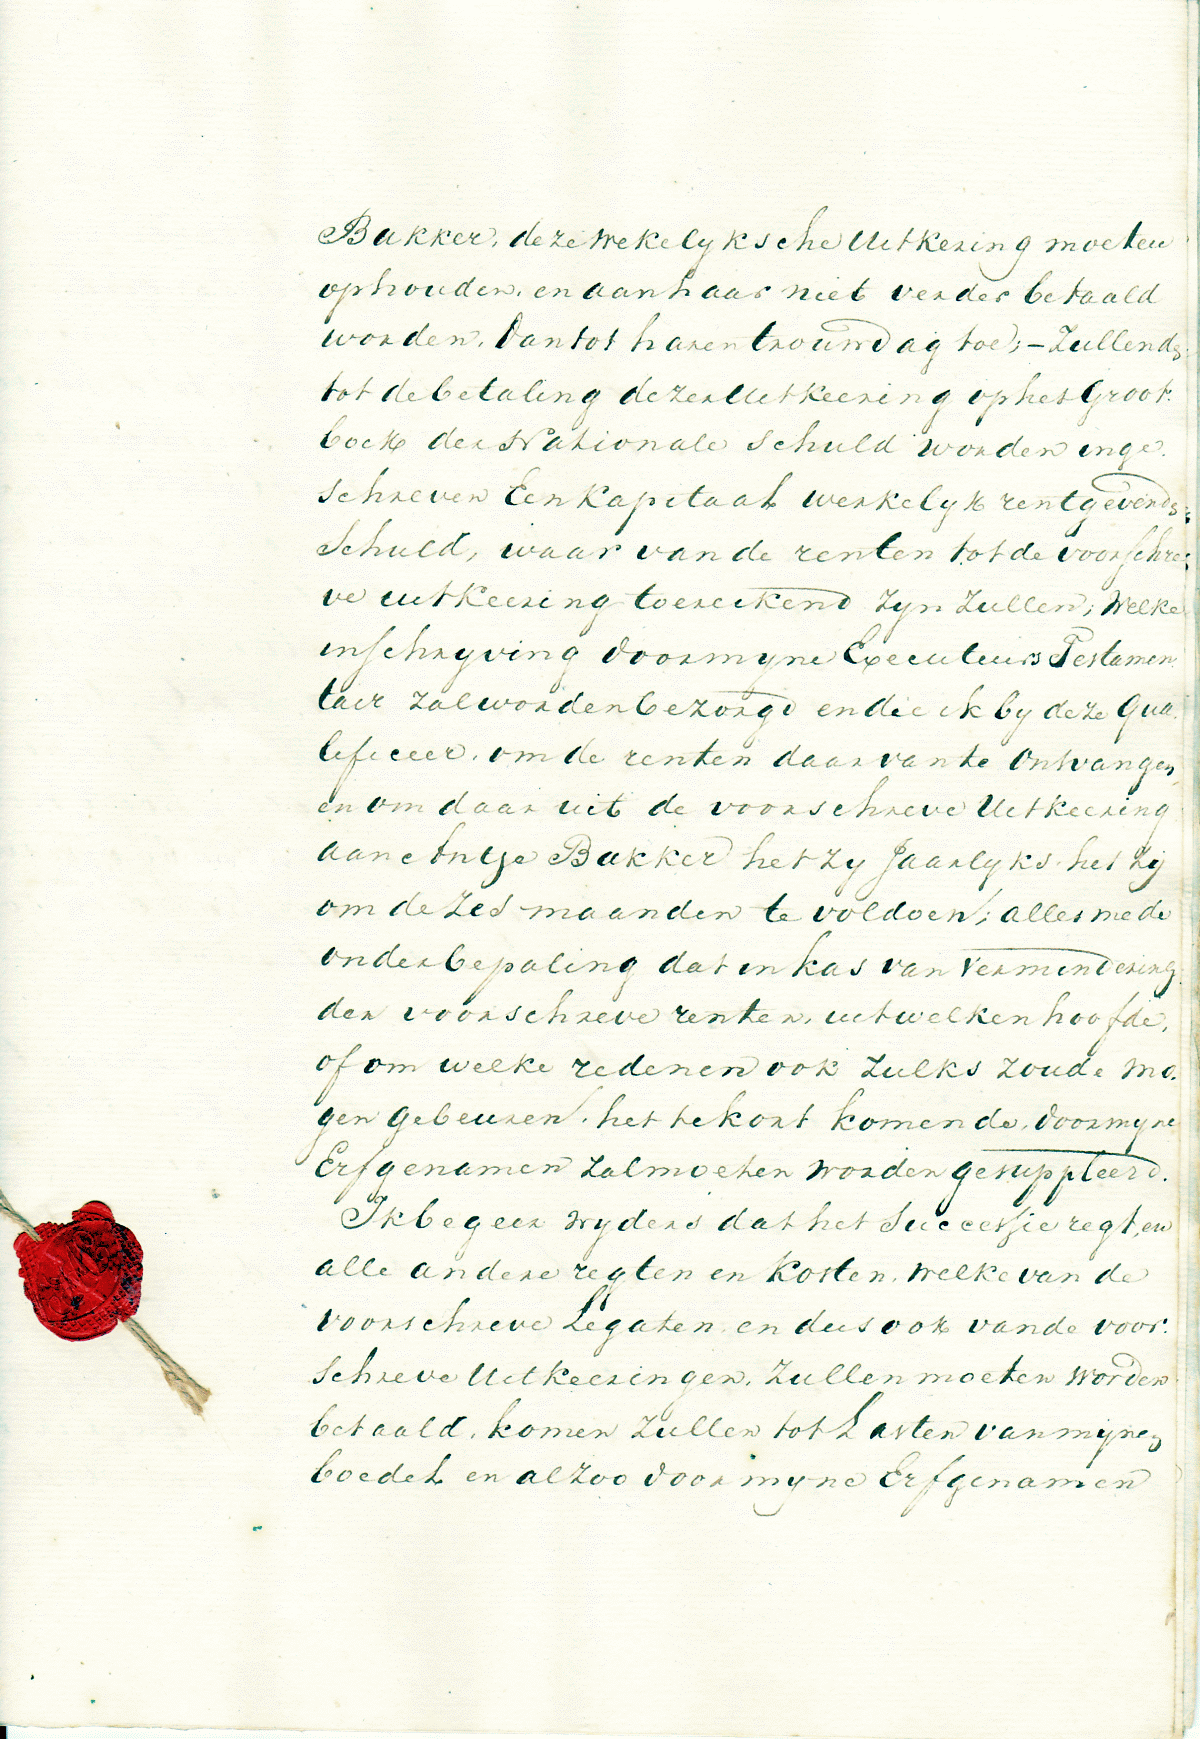 Bakker, deze wekelyksche Uitkering moeten
ophouden, en aan haar niet verder betaald
worden, dan tot haren trouwdag toe; – Zullende
tot de betaling dezer Uitkeering op het Groot-
boek der Nationale Schuld worden inge-
schreven Een Kapitaal werkelyk rentgevende
Schuld, waar van de renten tot de voorschre-
ve uitkeering toereikend zyn zullen; Welke
inschryving door myne Executeurs Testamen-
tair zal worden bezorgd en die ik by deze qua-
lificeer, om de renten daar van te Ontvangen,
en om daar uit de voorschreve Uitkeering
aan Antje Bakker het zy Jaarlyks het zij
om de zes maanden te voldoen; alles mede
onder bepaling dat in kas van Vermindering
der voorschreve renten, uit welken hoofde,
of om welke redenen ook zulks zoude mo-
gen gebeuren, het te kort komende, door myne
Erfgenamen zal moeten worden gesuppleerd.
Ik begeer wyders dat het Successie regt, en
alle andere regten en kosten, welke van de
voorschreve Legaten, en dus ook van de voor-
schreve Uitkeeringen, zullen moeten worden
betaald, komen zullen tot Lasten van mijnen
boedel en alzoo door myne Erfgenamen